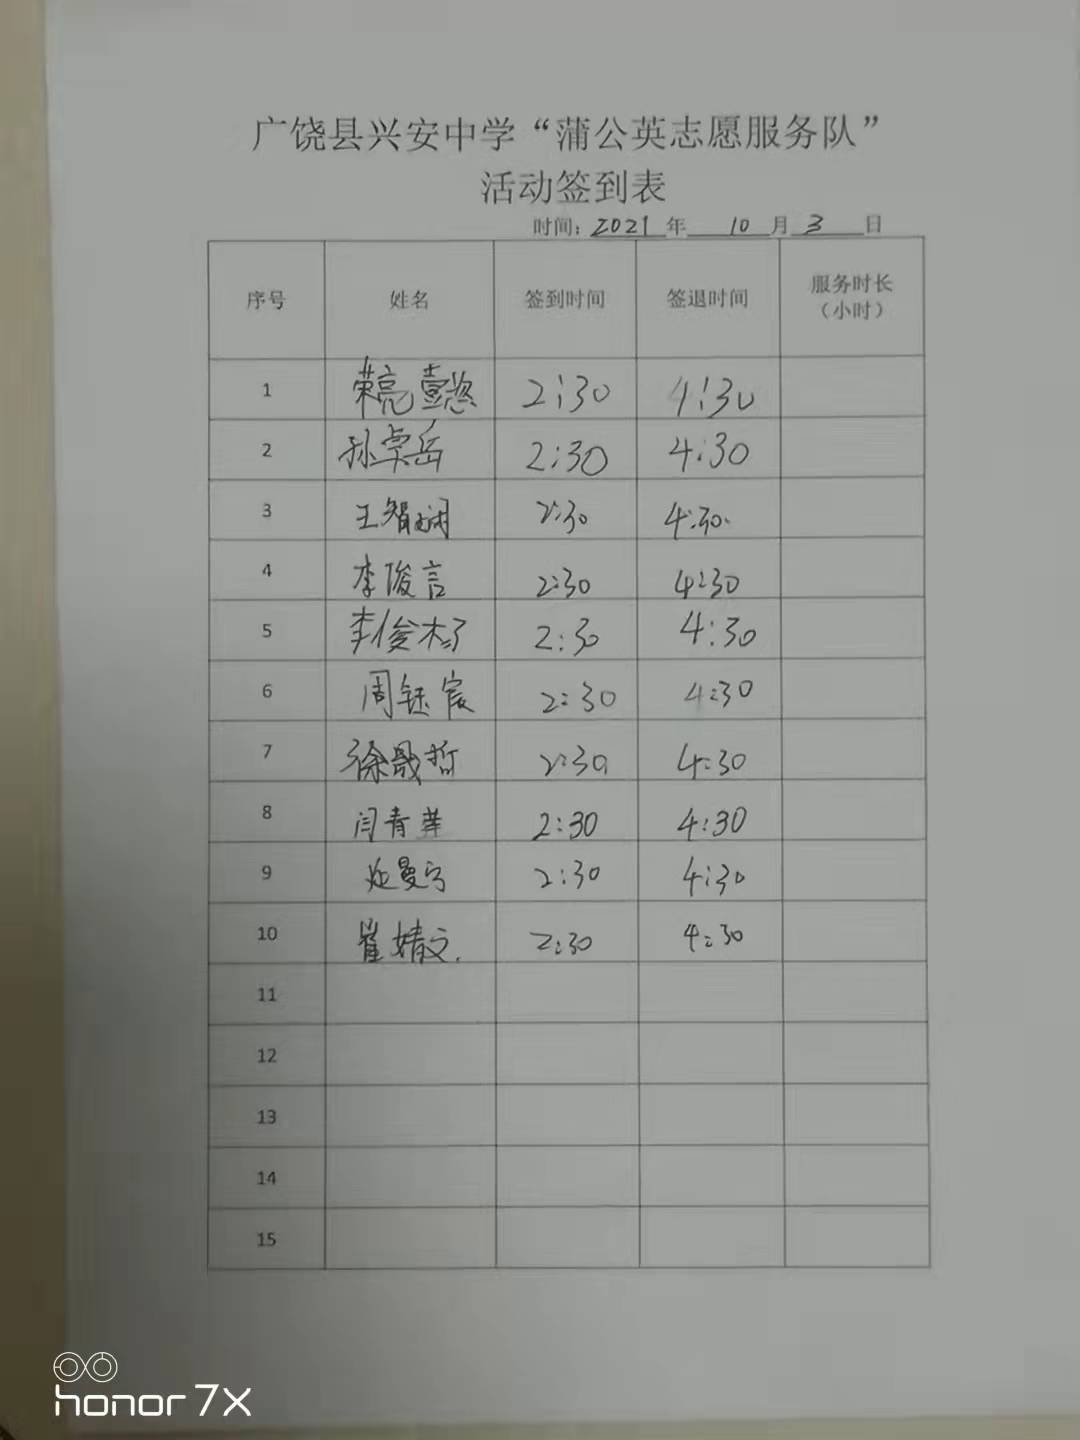 广饶县兴安中学“蒲公英志愿服务队”
活动签到表
时间：2021 年 10 月 3 日
序号 姓名 签到时间 签退时间 服务时长（小时）
1 荣亮壹悠 2:30 4:30
2 孙卓岳 2:30 4:30
3 王智娴 2:30 4:30
4 李俊言 2:30 4:30
5 李俊杉 2:30 4:30
6 周钰宸 2:30 4:30
7 徐晟哲 2:30 4:30
8 闫青 2:30 4:30
9 2:30 4:30
10 崔婧文 2:30 4:30
11
12
13
14
15
honor 7X